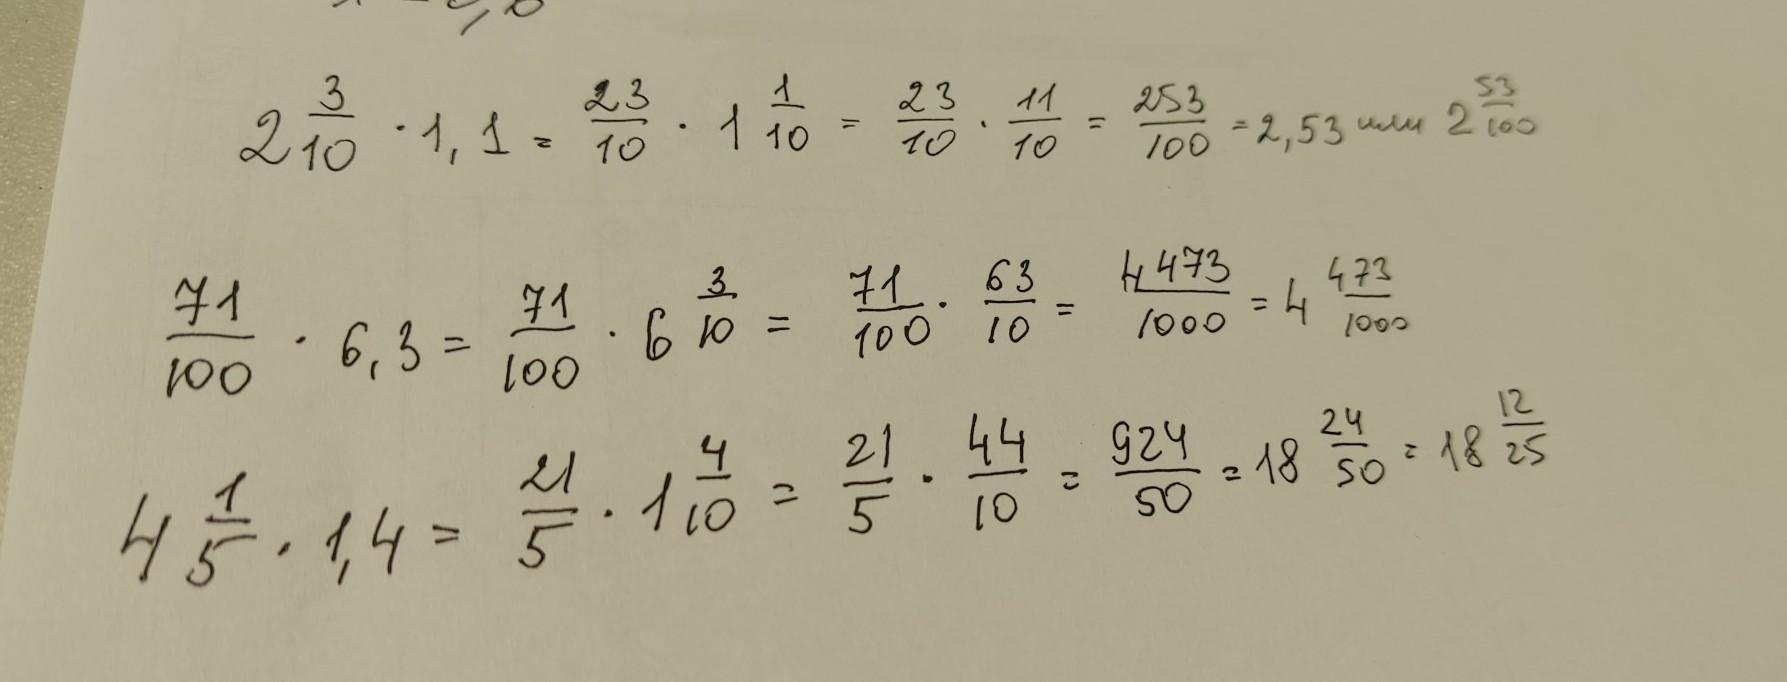 2 3/10 · 1,1 = 23/10 · 1 1/10 = 23/10 · 11/10 = 253/100 = 2,53 или 2 53/100
71/100 · 6,3 = 71/100 · 6 3/10 = 71/100 · 63/10 = 4473/1000 = 4 473/1000
4 1/5 · 1,4 = 21/5 · 1 4/10 = 21/5 · 44/10 = 924/50 = 18 24/50 = 18 12/25